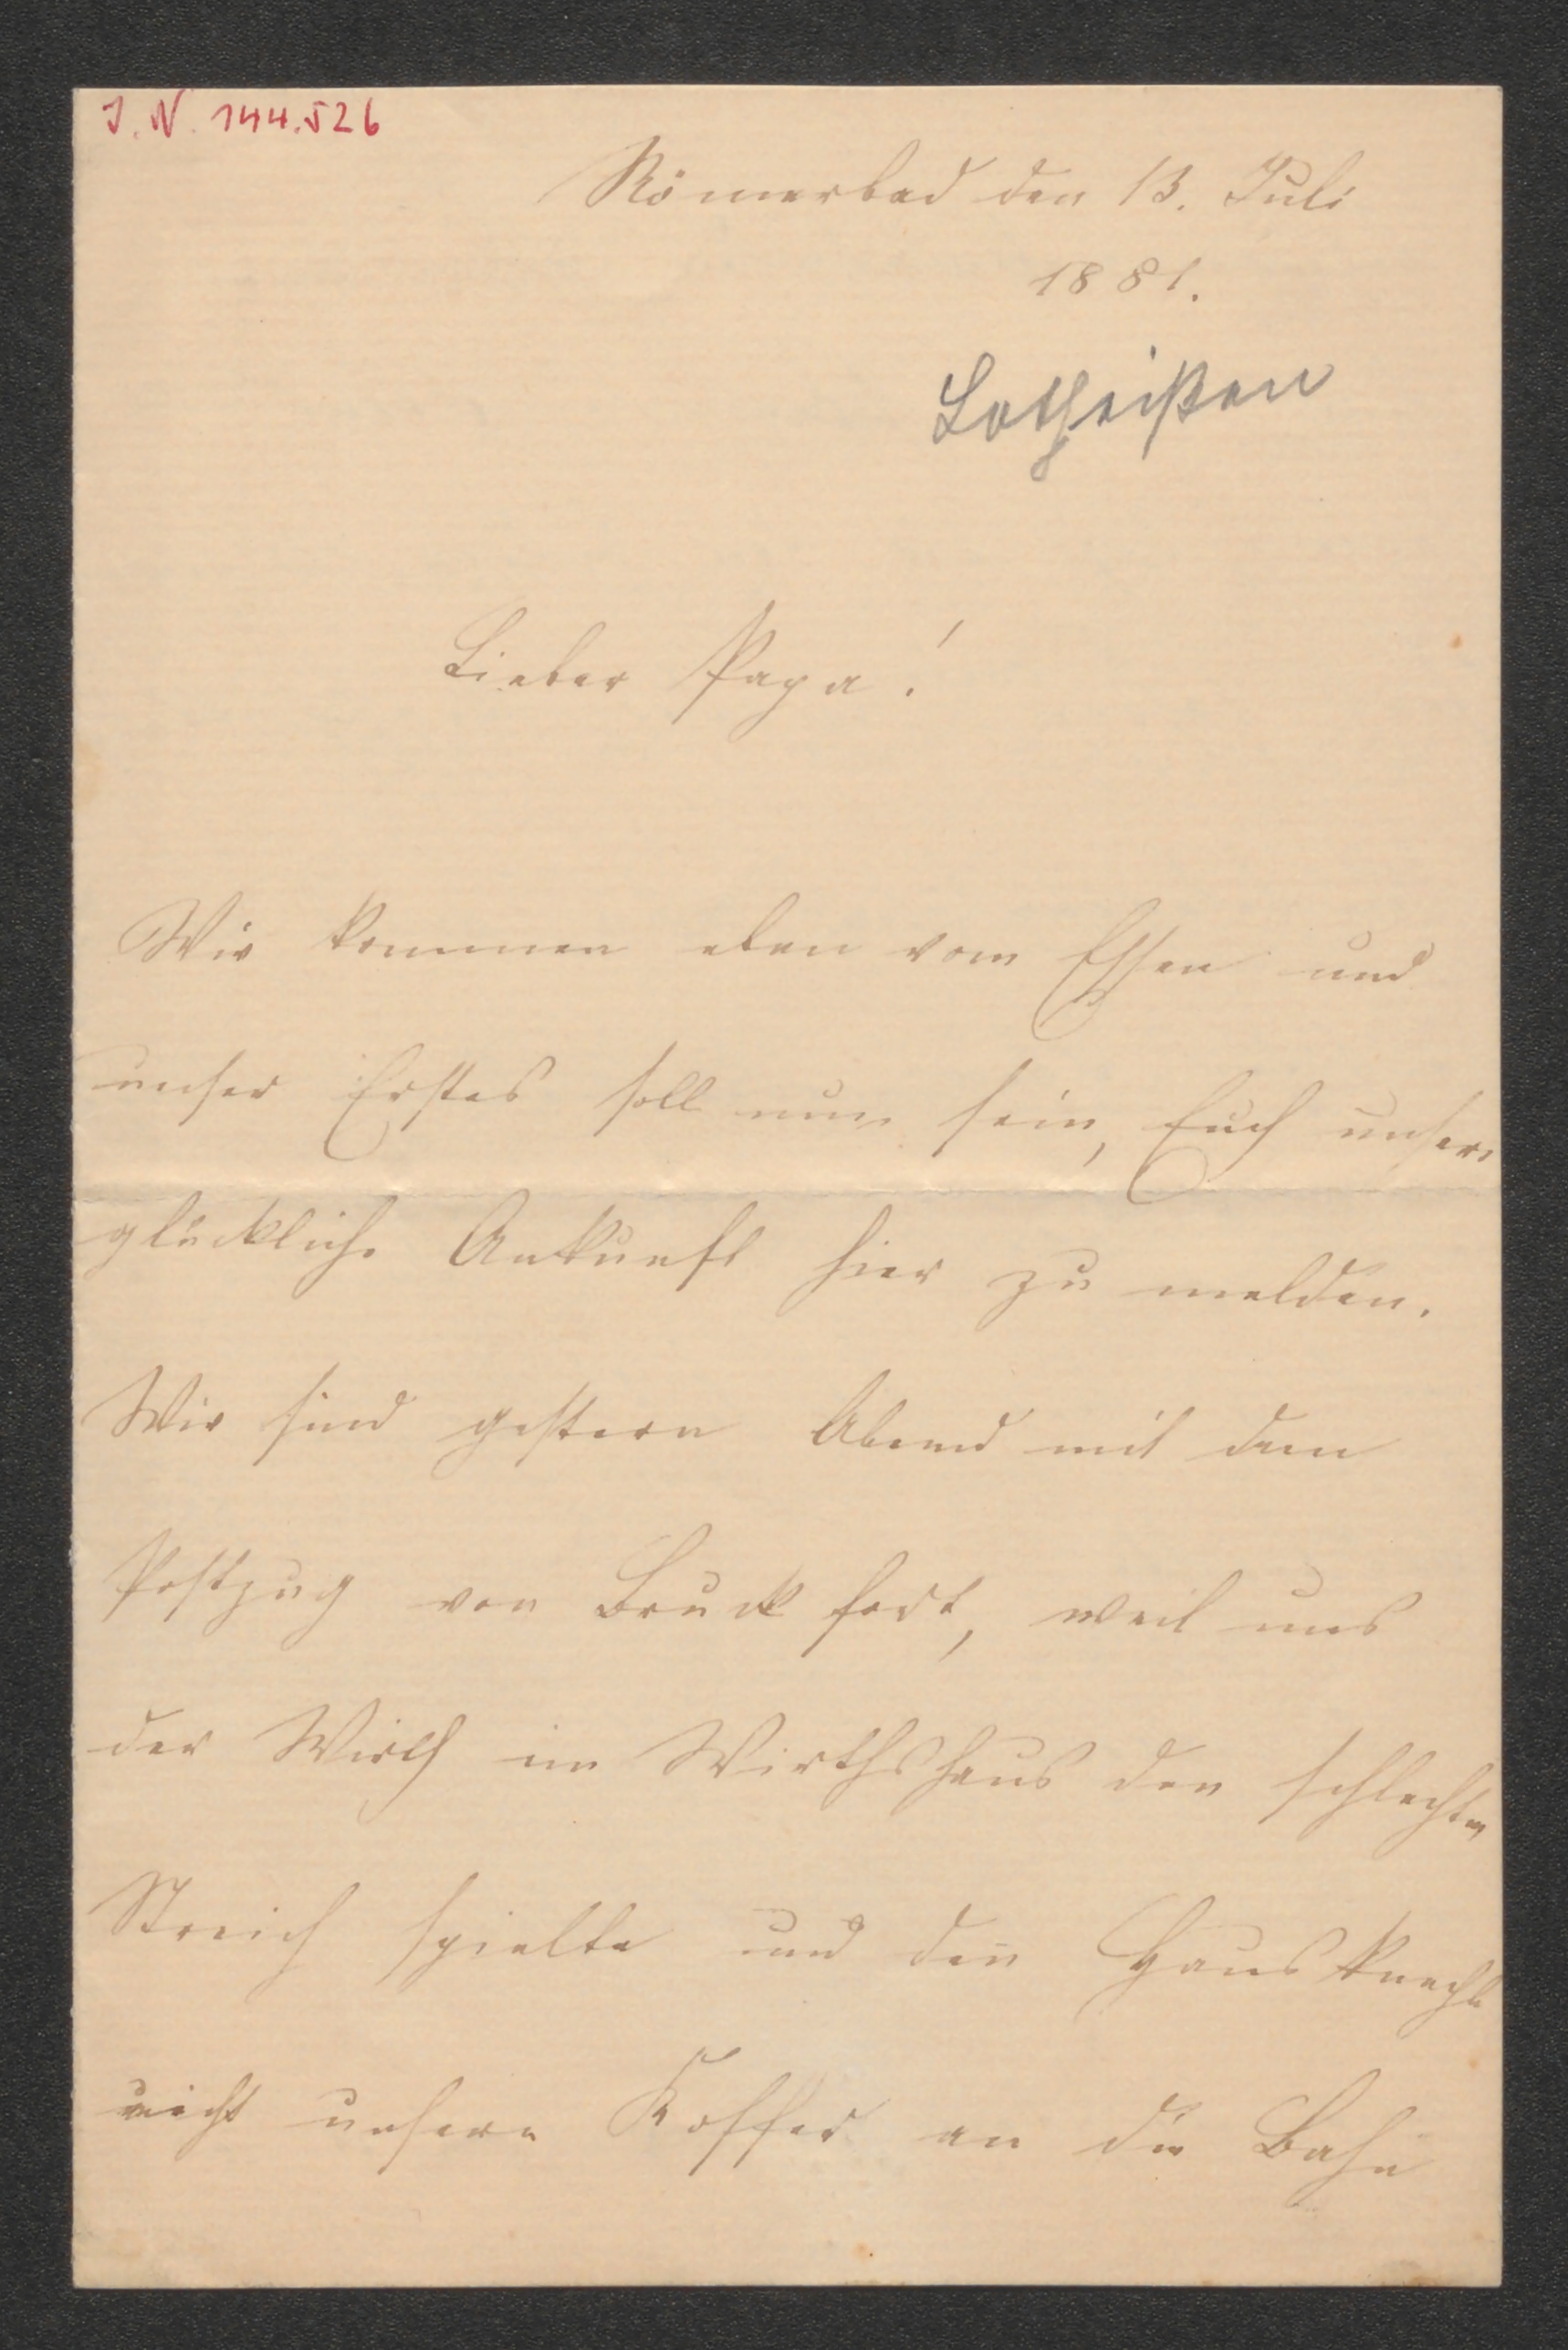 J. N. 144.526
Römerbad den 13. Juli
1881.
Lotheißen
Lieber Papa!
Wir kommen eben vom Essen und
unser Erstes soll nun sein, Euch unsere
glückliche Ankunft hier zu melden.
Wir sind gestern Abend mit dem
Postzug von Bruck fort, weil uns
der Wirth im Wirthshaus den schlechten
Streich spielte und den Hausknecht
nicht unsere Koffer an die Bahn